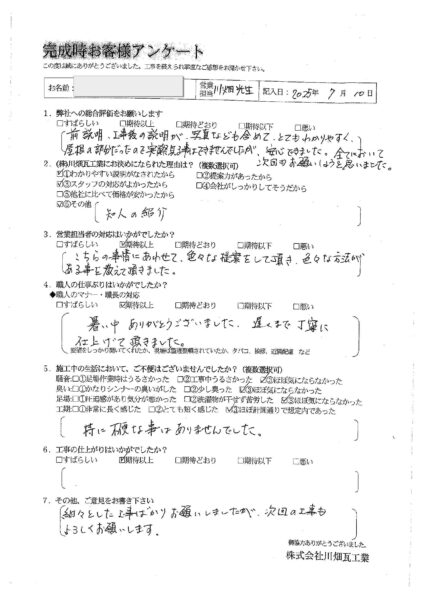 完成時お客様アンケート
この度は誠にありがとうございました。工事を終えられ率直なご感想をお聞かせ下さい。
お名前:
営業担当 川畑光生
記入日: 2025年 7月 10日
1. 弊社への総合評価をお願いします
□すばらしい □期待以上 □期待どおり □期待以下 □悪い
前説明、工事後の説明が、写真なども含めて、とてもわかりやすく、
屋根の部分だったので実際見る事はできませんでしたが、安心できました。全てにおいて
次回もお願いしようと思いました。
2. (株)川畑瓦工業にお決めになられた理由は?(複数選択可)
☑①わかりやすい説明がなされたから □②提案力があったから
☑③スタッフの対応がよかったから □④会社がしっかりしてそうだから
□⑤他社に比べて価格が安かったから
☑⑥その他
知人の紹介
3. 営業担当者の対応はいかがでしたか?
□すばらしい ☑期待以上 □期待どおり □期待以下 □悪い
こちらの事情にあわせて、色々な提案をして頂き、色々な方法が
ある事を教えて頂きました。
4. 職人の仕事ぶりはいかがでしたか?
◆職人のマナー・職長の対応
□すばらしい ☑期待以上 □期待どおり □期待以下 □悪い
暑い中 ありがとうございました。遅くまで丁寧に
仕上げて頂きました。
5. 施工中の生活において、ご不便はございませんでしたか?(複数選択可)
騒音-□①足場作業時はうるさかった □②工事中うるさかった ☑③ほぼ気にならなかった
臭い-□①かなりシンナーの臭いがした □②少し臭った ☑③ほぼ気にならなかった
足場-□①圧迫感があり気分が悪かった □②洗濯物が干せず苦労した ☑③ほぼ気にならなかった
工期-□①非常に長く感じた □②とても短く感じた ☑③ほぼ計画通りで想定内であった
特に不便な事はありませんでした。
6. 工事の仕上がりはいかがでしたか?
□すばらしい ☑期待以上 □期待どおり □期待以下 □悪い
7. その他、ご意見をお書き下さい
細々とした工事ばかりお願いしましたが、次回の工事も
よろしくお願いします。
御協力ありがとうございました。
株式会社川畑瓦工業